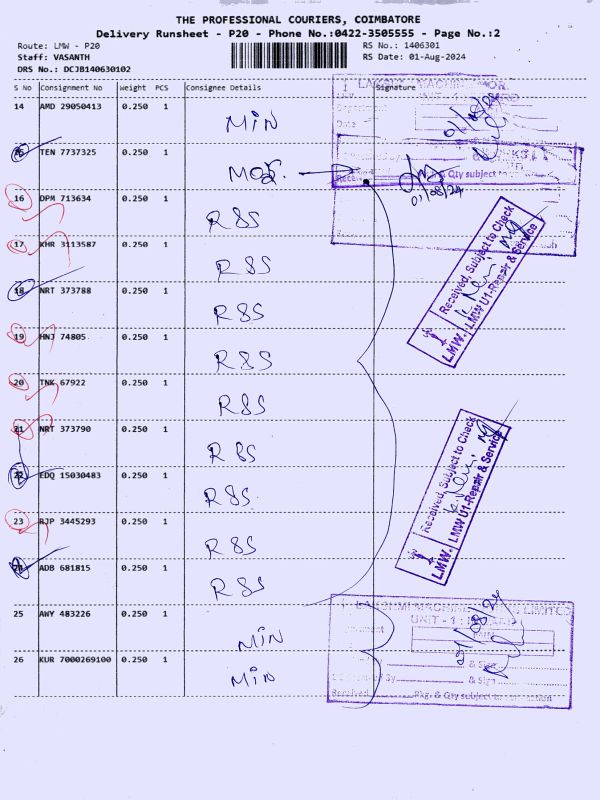 THE PROFESSIONAL COURIERS, COIMBATORE
Delivery Runsheet - P20 - Phone No.:0422-3505555 - Page No.:2
Route: LMW - P20
RS No.: 1406301
Staff: VASANTH
RS Date: 01-Aug-2024
DRS No.: DCJB140630102
S No Consignment No Weight PCS Consignee Details Signature
14 AMD 29050413 0.250 1 MIN
15 TEN 7737325 0.250 1
01/08/24
16 DPM 713634 0.250 1 R&S
17 KHR 3113587 0.250 1 R&S
18 NRT 373788 0.250 1 R&S
19 HNJ 74805 0.250 1 R&S
20 TNK 67922 0.250 1 R&S
21 NRT 373790 0.250 1 R&S
22 EDQ 15030483 0.250 1 R&S
23 RJP 3445293 0.250 1 R&S
24 ADB 681815 0.250 1 R&S
25 AWY 483226 0.250 1 MIN
26 KUR 7000269100 0.250 1 MIN
Received, Subject to Check
LMW. LMW U1-Repair & Service
Received, Subject to Check
LMW. LMW U1-Repair & Service
UNIT - 1
& Sign
& Sign
Received